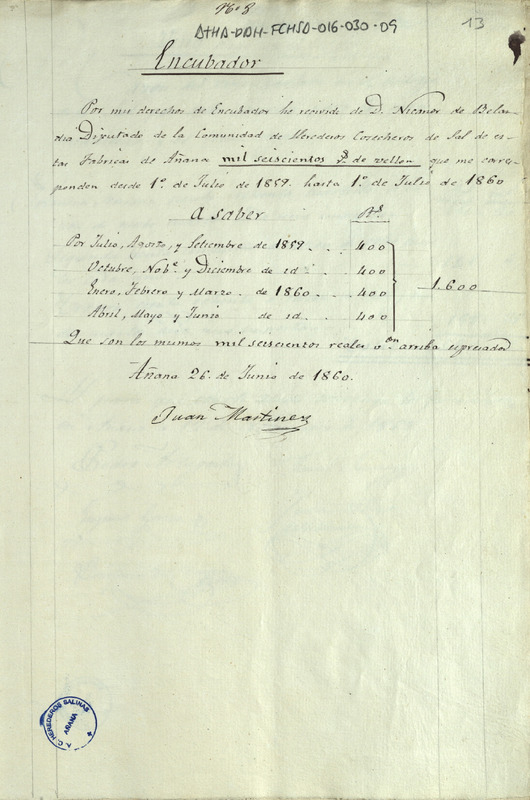 Nº 8
ATHA-DAH-FCHSA-016-030-09
13
Encubador
Por mis derechos de Encubador he recivido de D. Nicanor de Belan-
dia Diputado de la Comunidad de Herederos Cosecheros de Sal de es-
tas Fabricas de Añana mil seiscientos rs. de vellon que me corres-
ponden desde 1º. de Julio de 1859. hasta 1º. de Julio de 1860
A saber
Rs.
Por Julio, Agosto, y Setiembre de 1859 . . 400
Octubre, Nobe. y Diciembre de id . . 400
Enero, Febrero y Marzo . de 1860 . . 400
Abril, Mayo y Junio de id . . 400
1.600
Que son los mismos mil seiscientos reales von. arriba espresados
Añana 26. de Junio de 1860.
Juan Martinez
A. C. HEREDEROS SALINAS
AÑANA